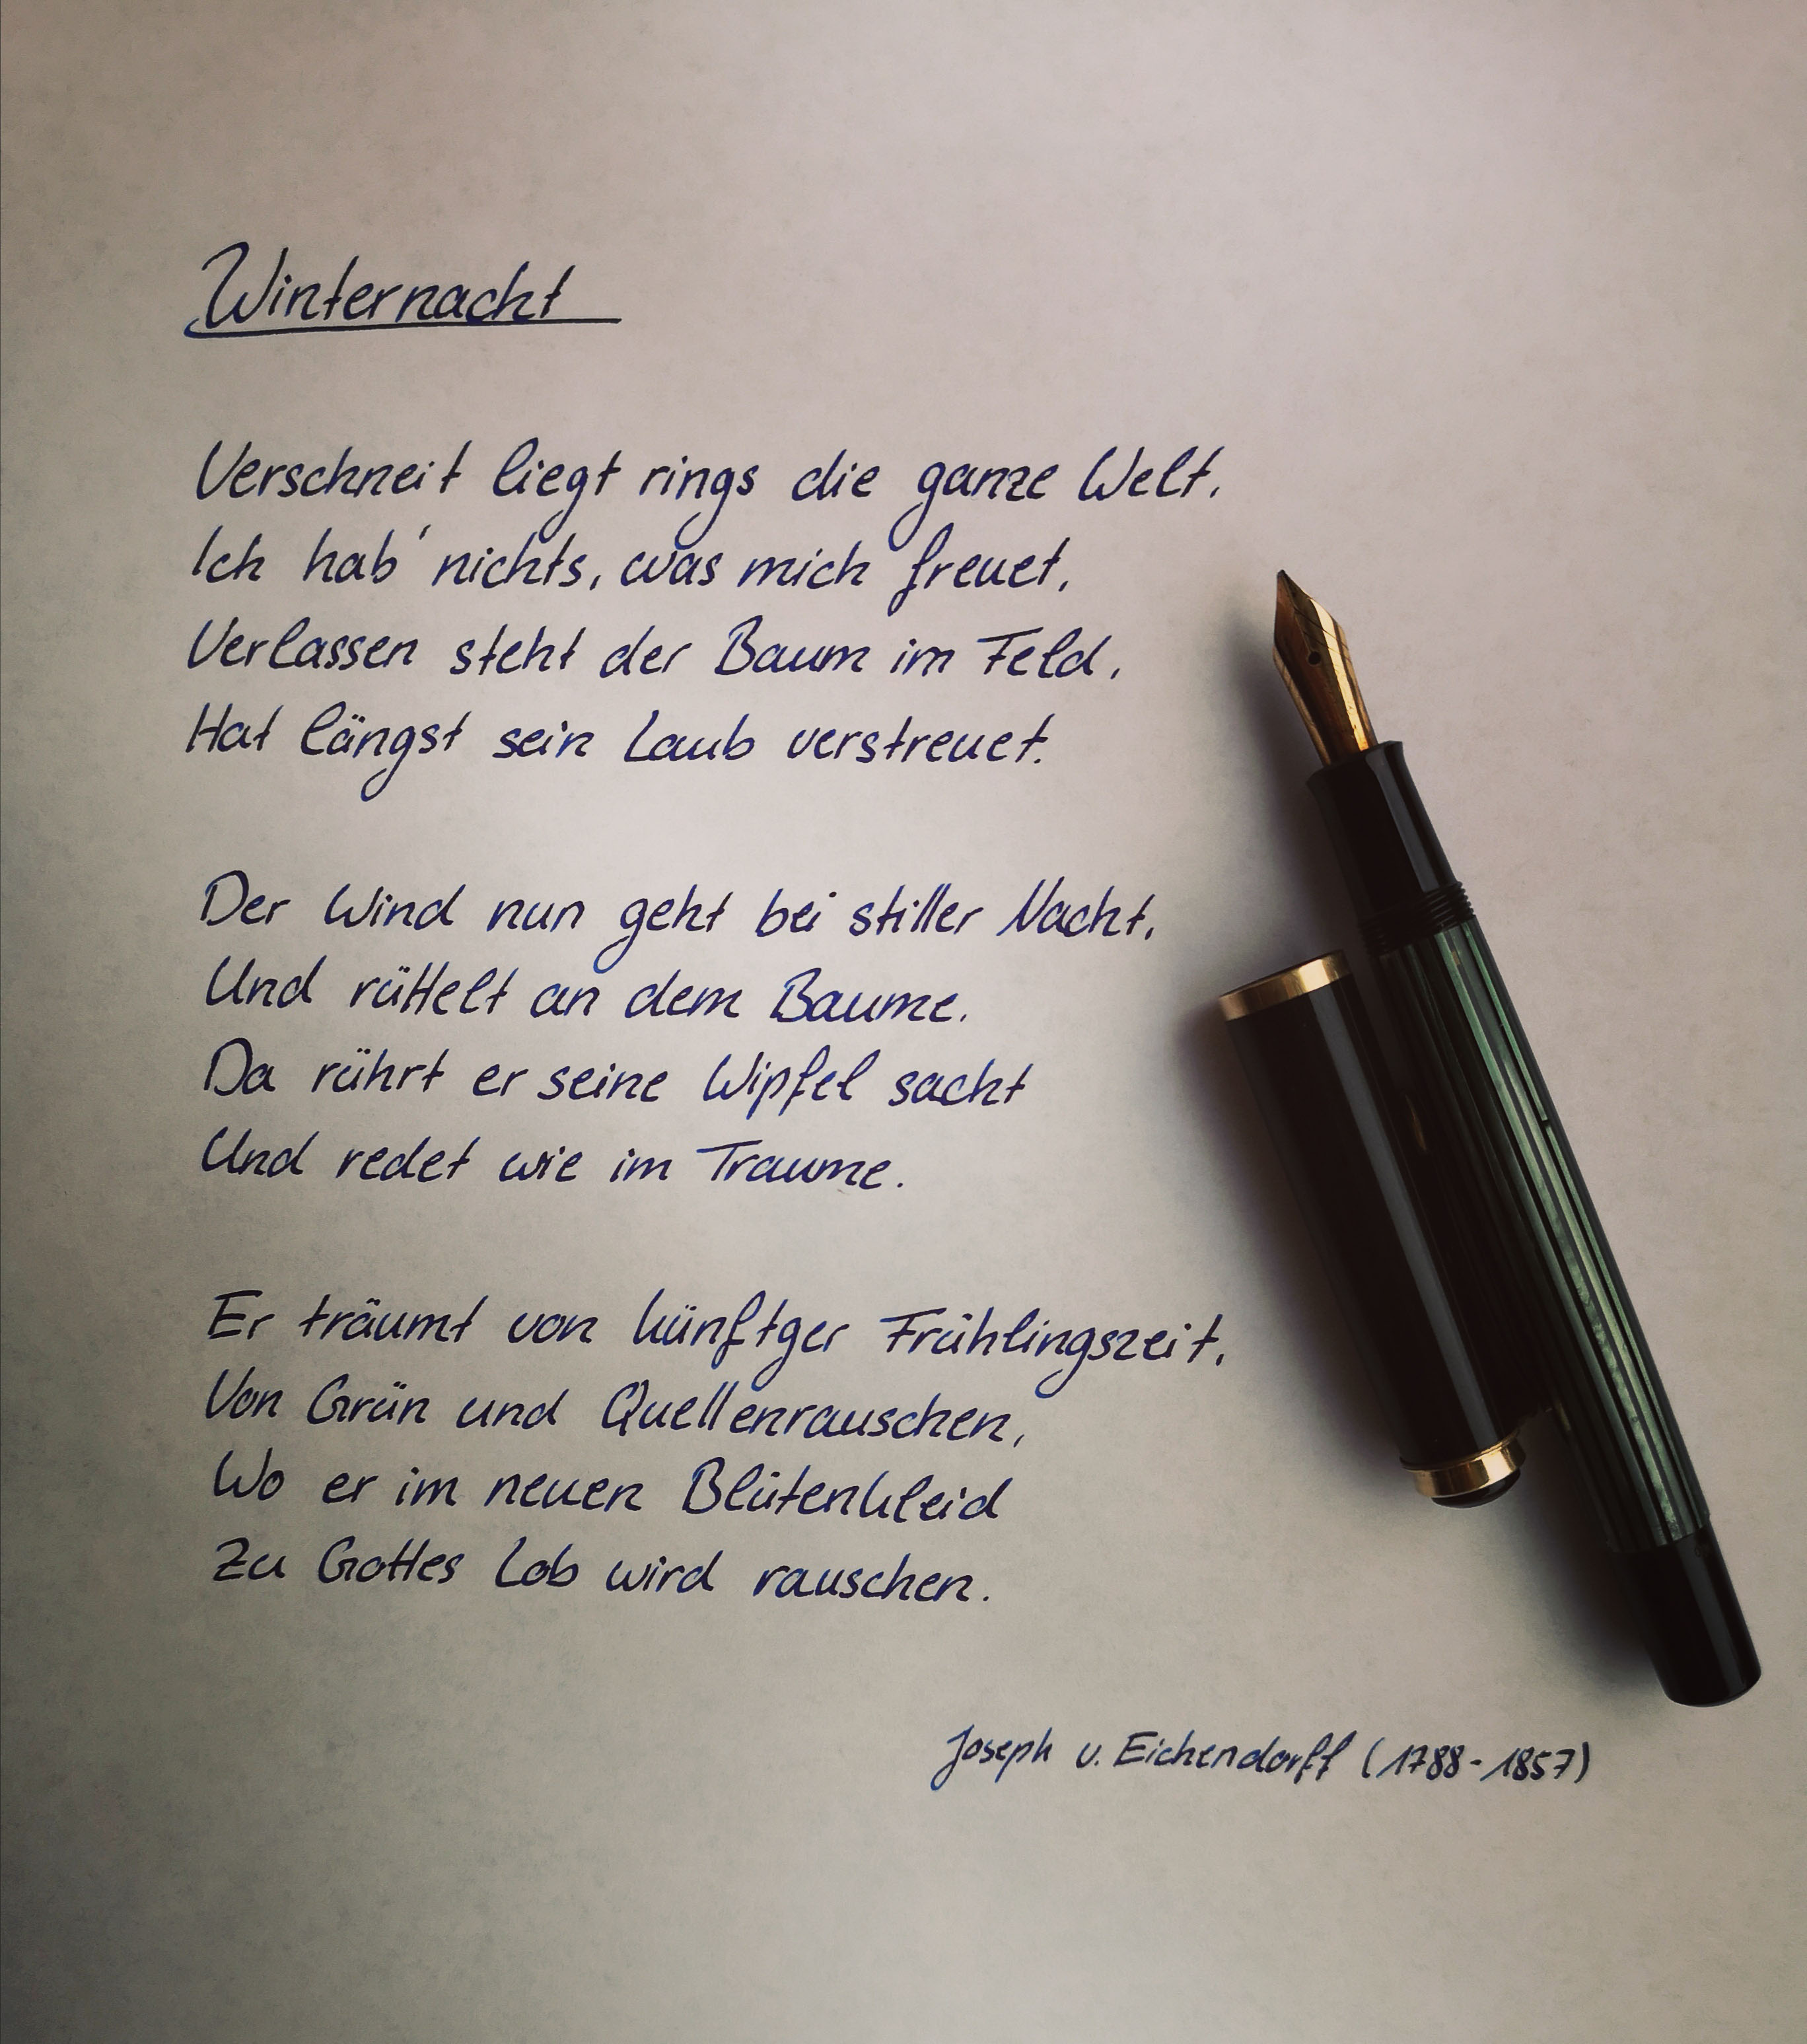 Winternacht
Verschneit liegt rings die ganze Welt,
Ich hab' nichts, was mich freuet,
Verlassen steht der Baum im Feld,
Hat längst sein Laub verstreuet.
Der Wind nun geht bei stiller Nacht,
Und rüttelt an dem Baume,
Da rührt er seine Wipfel sacht
Und redet wie im Traume.
Er träumt von künftger Frühlingszeit,
Von Grün und Quellenrauschen,
Wo er im neuen Blütenkleid
Zu Gottes Lob wird rauschen.
Joseph v. Eichendorff (1788-1857)